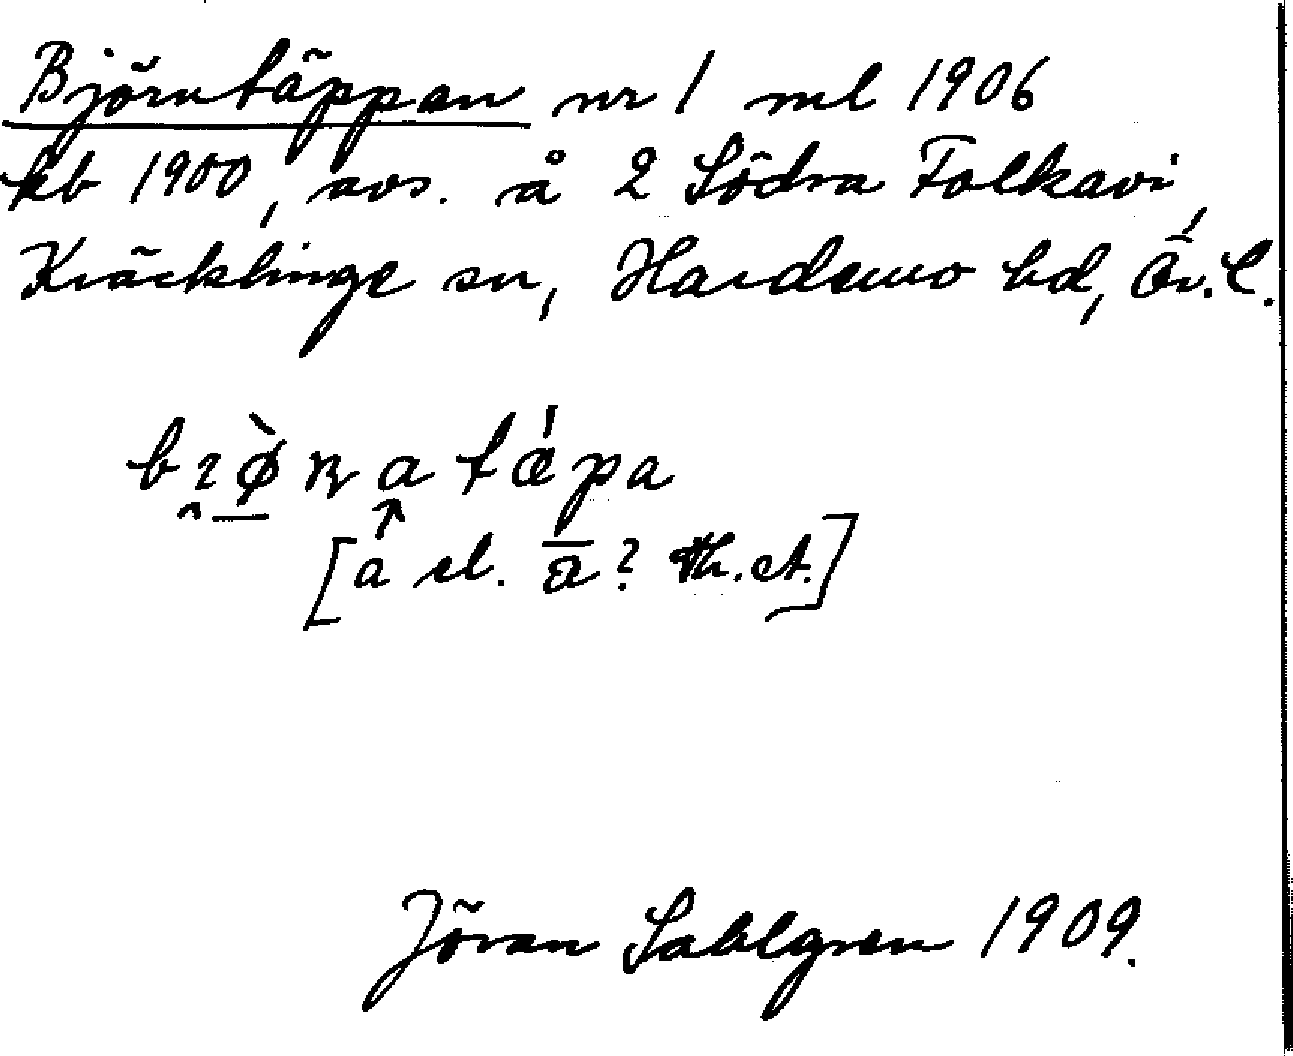 Björntäppan nr 1 ml 1906
kb 1900, avs. å 2 Södra Folkavi,
Kräcklinge sn, Hardemo hd, Ör. l.
bɿø̀ɳatǽpa
[a el. a̅? Th. et.]
Jöran Sahlgren 1909.